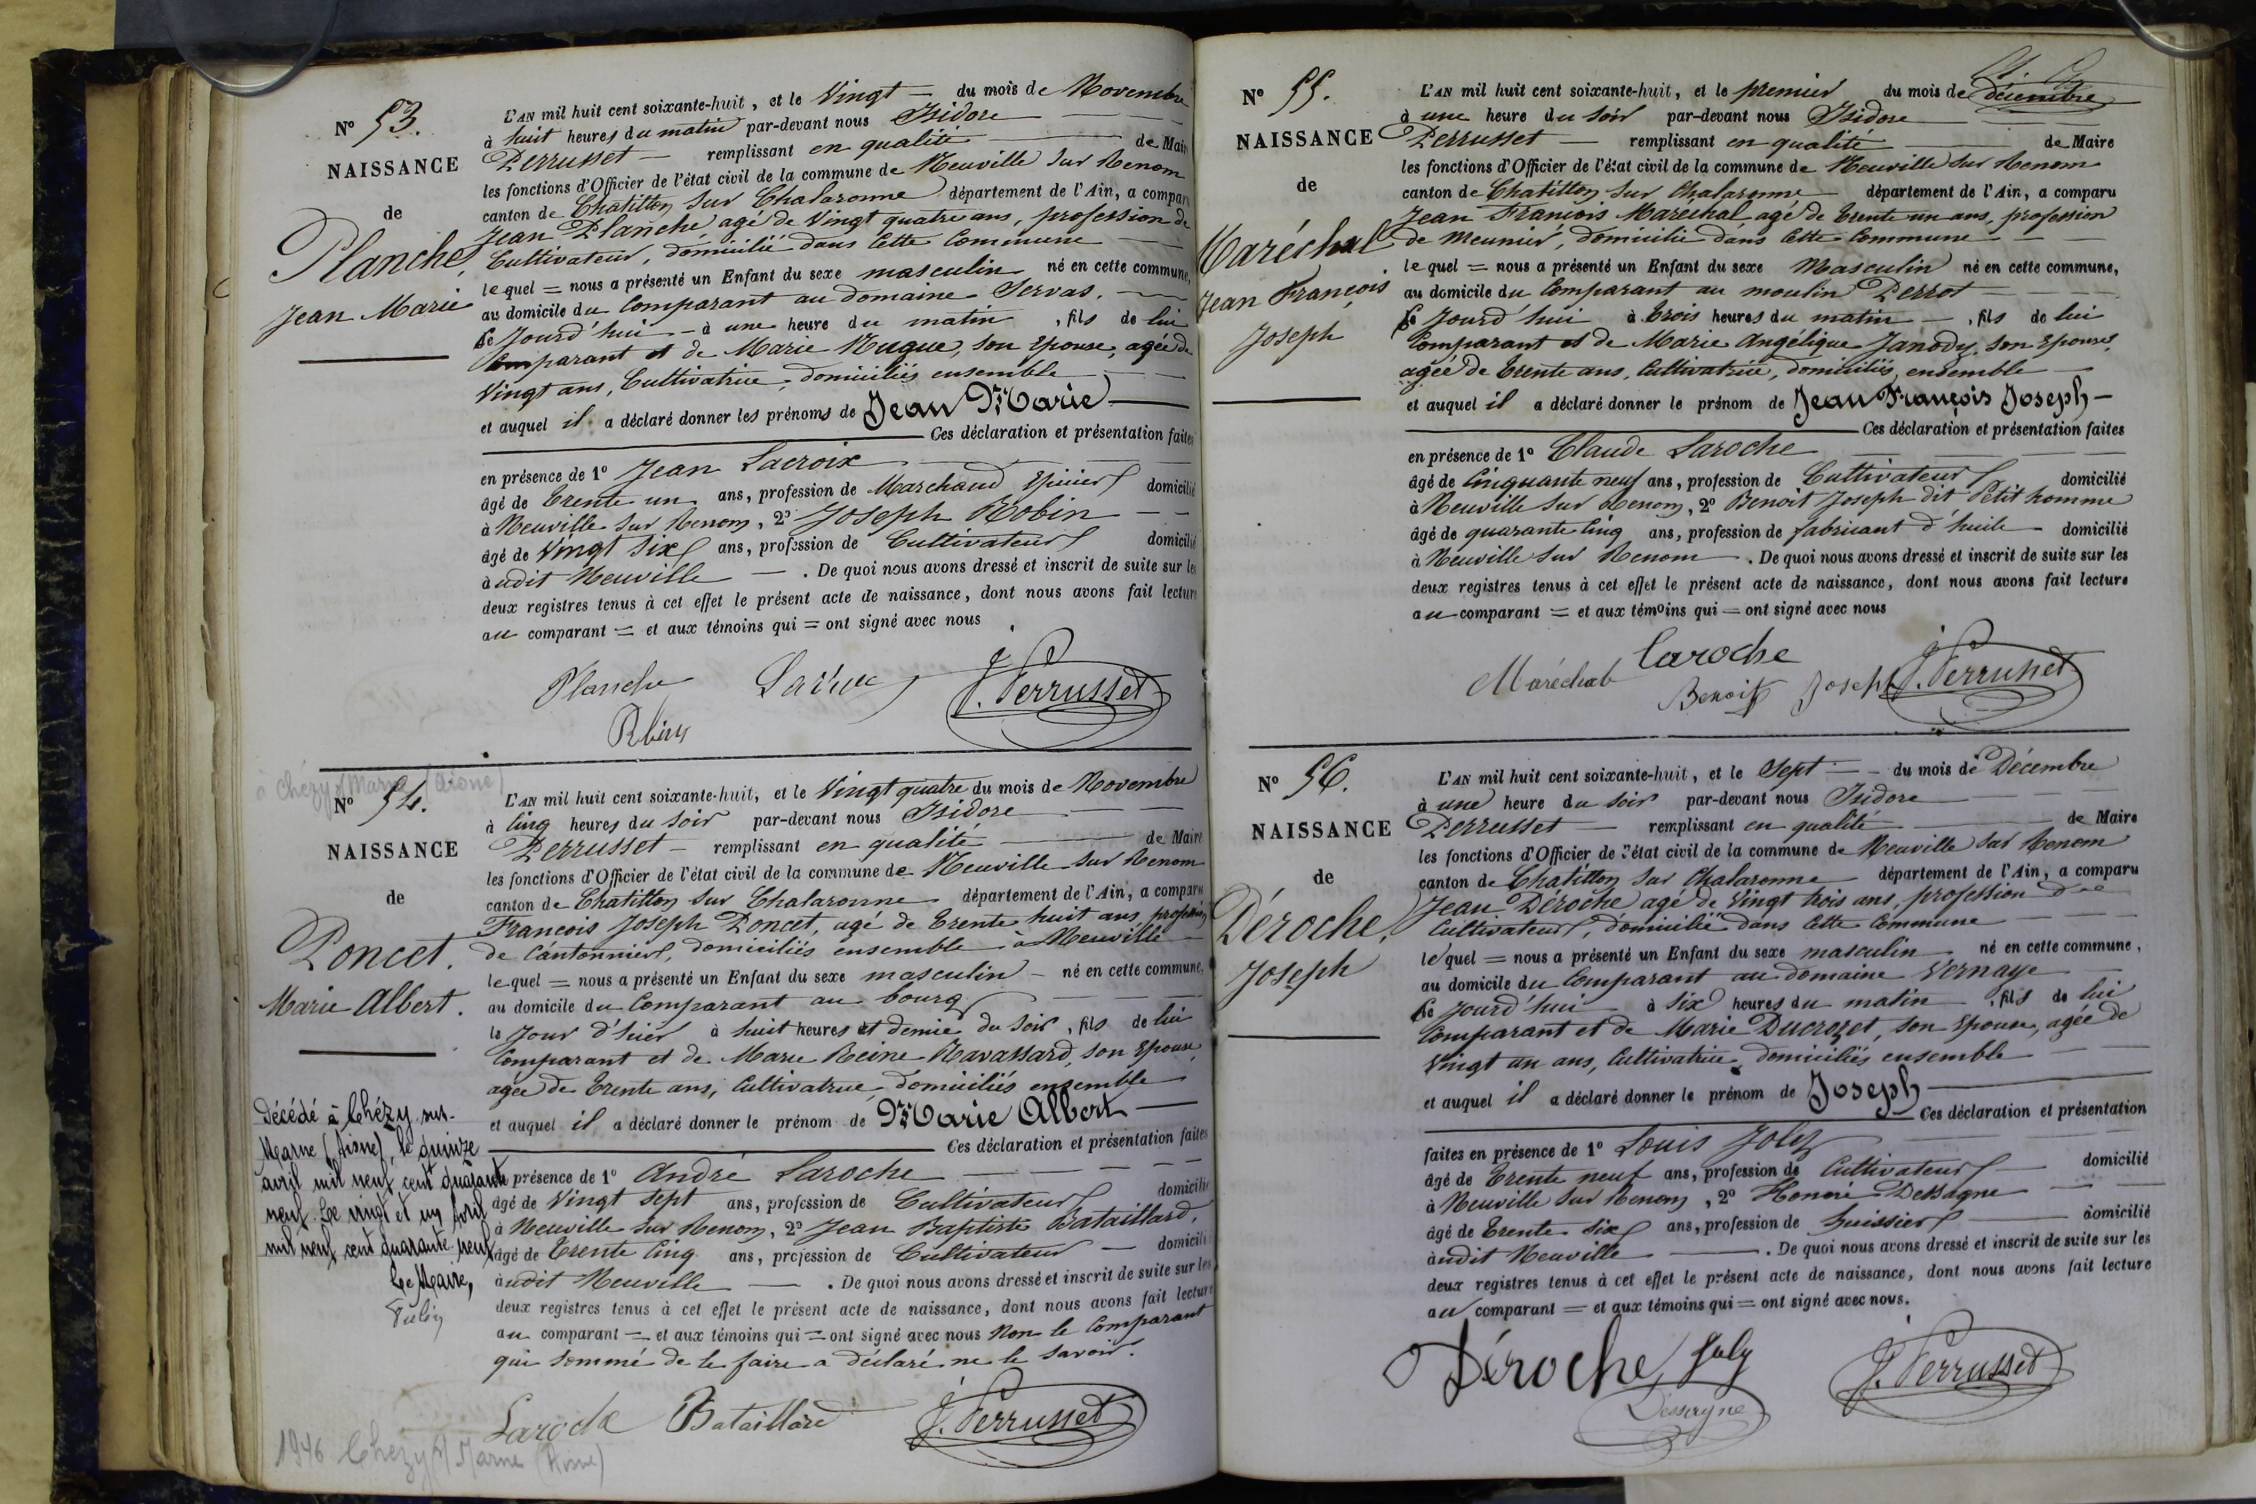 N° 53.
NAISSANCE
de
Planche,
Jean Marie
L'AN mil huit cent soixante-huit, et le Vingt — du mois de Novembre
à huit heures du matin par-devant nous Isidore
Perrusset — remplissant en qualité — de Maire
les fonctions d'Officier de l'état civil de la commune de Neuville sur Renom
canton de Chatillon sur Chalaronne département de l'Ain, a comparu
Jean Planche, agé de Vingt quatre ans, profession de
Cultivateur, domicilié dans cette Commune —
lequel = nous a présenté un Enfant du sexe masculin né en cette commune,
au domicile du Comparant au domaine Servas. —
Ce Jourd'hui — à une heure du matin, fils de lui
Comparant et de Marie Nugue, son Epouse, agée de
Vingt ans, Cultivatrice, domiciliés ensemble —
et auquel il a déclaré donner les prénoms de Jean Marie —
Ces déclaration et présentation faites
en présence de 1° Jean Lacroix —
âgé de Trente un ans, profession de Marchand Epicier domicilié
à Neuville sur Renom, 2° Joseph Robin — —
âgé de Vingt Six ans, profession de Cultivateur domicilié
à udit Neuville — . De quoi nous avons dressé et inscrit de suite sur les
deux registres tenus à cet effet le présent acte de naissance, dont nous avons fait lecture
au comparant = et aux témoins qui = ont signé avec nous
Planche J. Perrusset
à Chézy s/Marne (Aisne)
N° 54.
NAISSANCE
de
Poncet.
Marie Albert.
L'AN mil huit cent soixante-huit, et le Vingt quatre du mois de Novembre
à Cinq heures du Soir par-devant nous Isidore —
Perrusset — remplissant en qualité — de Maire
les fonctions d'Officier de l'état civil de la commune de Neuville sur Renom
canton de Chatillon sur Chalaronne département de l'Ain, a comparu
François Joseph Poncet, agé de Trente huit ans, profession
de Cantonnier, domiciliés ensemble à Neuville —
lequel = nous a présenté un Enfant du sexe masculin — né en cette commune,
au domicile du Comparant au bourg —
le Jour d'hier à huit heures et demie du Soir, fils de lui
Comparant et de Marie Reine Ravassard, son Epouse
agée de Trente ans, Cultivatrice, domiciliés ensemble
et auquel il a déclaré donner le prénom de Marie Albert —
Ces déclaration et présentation faites
en présence de 1° André Laroche — — — —
âgé de Vingt Sept ans, profession de Cultivateur domicilié
à Neuville sur Renom, 2° Jean Baptiste Bataillard,
âgé de Trente Cinq ans, profession de Cultivateur — domicilié
à udit Neuville — . De quoi nous avons dressé et inscrit de suite sur les
deux registres tenus à cet effet le présent acte de naissance, dont nous avons fait lecture
au comparant = et aux témoins qui = ont signé avec nous Non le Comparant
qui sommé de le faire a déclaré ne le savoir.
Laroche Bataillard J. Perrusset
Décédé à Chézy-sur-
Marne (Aisne), le quinze
avril mil neuf cent quarante
neuf. Le vingt et un avril
mil neuf cent quarante-neuf
Le Maire,
1946 Chézy s/Marne (Aisne)
N° 55.
NAISSANCE
de
Maréchal
Jean François
Joseph
L'AN mil huit cent soixante-huit, et le premier du mois de décembre
à une heure du soir par-devant nous Isidore —
Perrusset — remplissant en qualité — de Maire
les fonctions d'Officier de l'état civil de la commune de Neuville sur Renom
canton de Chatillon sur Chalaronne département de l'Ain, a comparu
Jean François Marechal agé de Trente un ans, profession
de Meunier, domicilié dans cette Commune —
lequel = nous a présenté un Enfant du sexe Masculin né en cette commune,
au domicile du Comparant au moulin Perrot —
Ce Jourd'hui à Trois heures du matin —, fils de lui
Comparant et de Marie Angélique Janody, son Epouse,
agée de Trente ans, Cultivatrice, domiciliés ensemble —
et auquel il a déclaré donner le prénom de Jean François Joseph —
Ces déclaration et présentation faites
en présence de 1° Claude Laroche —
âgé de Cinquante neuf ans, profession de Cultivateur domicilié
à Neuville sur Renom, 2° Benoit Joseph dit Petit homme
âgé de quarante Cinq ans, profession de fabricant d'huile — domicilié
à Neuville sur Renom — . De quoi nous avons dressé et inscrit de suite sur les
deux registres tenus à cet effet le présent acte de naissance, dont nous avons fait lecture
au comparant = et aux témoins qui = ont signé avec nous
Maréchal Laroche Benoit Joseph J. Perrusset
N° 56.
NAISSANCE
de
Déroche,
Joseph
L'AN mil huit cent soixante-huit, et le Sept — du mois de Décembre
à une heure du soir par-devant nous Isidore — — —
Perrusset — remplissant en qualité — de Maire
les fonctions d'Officier de l'état civil de la commune de Neuville sur Renom
canton de Chatillon sur Chalaronne département de l'Ain, a comparu
Jean Déroche agé de Vingt trois ans, profession de
Cultivateur, domicilié dans cette Commune —
lequel = nous a présenté un Enfant du sexe masculin né en cette commune,
au domicile du Comparant au domaine Vernaye —
Ce Jourd'hui à Six heures du matin —, fils de lui
Comparant et de Marie Ducrozet, son Epouse, agée de
Vingt un ans, Cultivatrice, domiciliés ensemble —
et auquel il a déclaré donner le prénom de Joseph —
Ces déclaration et présentation
faites en présence de 1° Louis Joly —
âgé de Trente neuf ans, profession de Cultivateur — domicilié
à Neuville sur Renom, 2° Honoré Dessagne —
âgé de Trente Six ans, profession de huissier — domicilié
à udit Neuville — . De quoi nous avons dressé et inscrit de suite sur les
deux registres tenus à cet effet le présent acte de naissance, dont nous avons fait lecture
au comparant = et aux témoins qui = ont signé avec nous.
Déroche Joly J. Perrusset
Dessagne